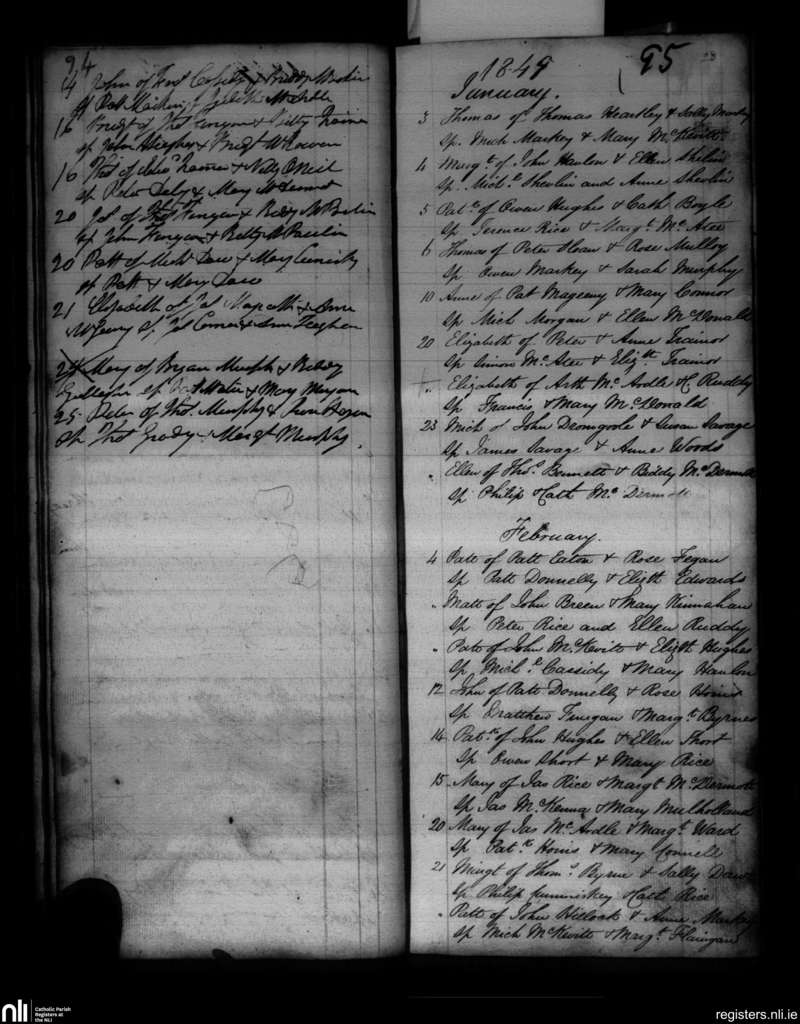 94
14 John of & Biddy
sp Patt &
16 Bridgt of Thos Finegan & Kitty Trainor
sp John & Bridgt McCowen
16 Thos of Trainor & Nelly ONeil
sp Peter Daly & Mary
20 Jas of Thos Finegan & Biddy McParlin
sp John Finegan & Betty McParlin
20 Patt of Mich Daw & Mary
sp Patt & Mary Daw
21 Elizabeth of Jas & Anne
McGeeny sp Jas & Ann Feighan
24 Mary of Bryan Murphy & Biddy
Gallagher sp & Mary
25 Peter of Thos. Murphy & Hogan
sp Thos Grady & Margt Murphy.
1849 95
January.
3 Thomas of Thomas Heartley & Sally Markey
Sp. Mich Markey & Mary McKevitt
4 Margt. of John Hanlon & Ellen Shevlin
Sp. Michl. Shevlin and Anne Shevlin
5 Patk. of Owen Hughes & Cath Boyle
Sp Terence Rice & Margt. McAtee
6 Thomas of Peter Sloan & Rose Mulloy
Sp Owen Markey & Sarah Murphy
10 Anne of Pat Mageeny & Mary Connor
Sp Mich Morgan & Ellen McDonald
20 Elizabeth of Peter & Anne Trainor
Sp Simon McAtee & Elizth. Trainor
" Elizabeth of Arth McArdle & C. Ruddy
Sp Francis & Mary McDonald
23 Mich of John Dromgoole & Susan Savage
Sp James Savage & Anne Woods
" Ellen of Thos. Bennett & Biddy McDermott
Sp Philip & Cath McDermott
February.
4 Patt of Patt Eaton & Rose Fegan
Sp Patt Donnelly & Elizth Edwards
" Matt of John Breen & Mary Kinnahan
Sp Peter Rice and Ellen Ruddy
" Patt of John McKevitt & Elizth Hughes
Sp Michl. Cassidy & Mary Hanlon
12 John of Patt Donnelly & Rose
Sp Matthew Finegan & Margt. Byrnes
14 Patk. of John Hughes & Ellen Short
Sp Owen Short & Mary Rice
15 Mary of Jas Rice & Margt McDermott
Sp Jas McKenna & Mary Mulholland
20 Mary of Jas McArdle & Margt. Ward
Sp Patk. & Mary Connell
21 Margt of Thoms. Byrne & Sally Daw
Sp Philip & Cath Rice
" Patt of John Hillock & Anne Markey
Sp Mich McKevitt & Margt. Flanigan
nli Catholic Parish Registers at the NLI
registers.nli.ie